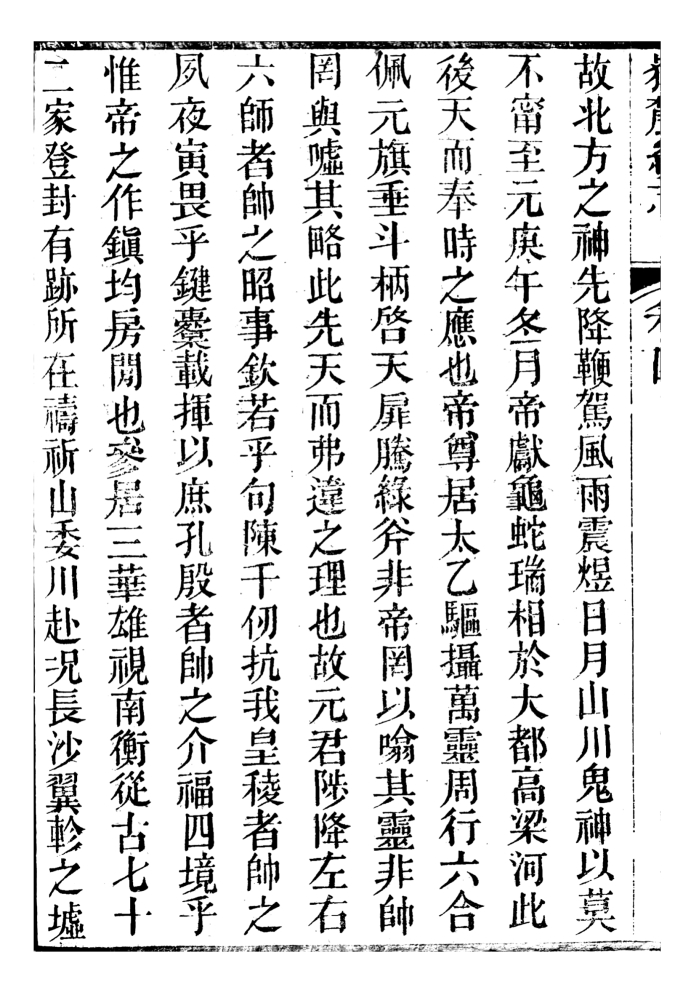 故北方之神先降鞭駕風雨震煜日月山川鬼神以莫
不甯至元庚午冬一月帝獻龜蛇瑞相於大都高梁河此
後天而奉時之應也帝尊居太乙驅攝萬靈周行六合
佩元旗垂斗柄啓天扉騰綠斧非帝罔以噏其靈非帥
罔與噓其略此先天而弗違之理也故元君陟降左右
六師者帥之昭事欽若乎句陳千仞抗我皇稜者帥之
夙夜寅畏乎鍵櫜載揮以庶孔殷者帥之介福四境乎
惟帝之作鎮均房閒也參居三華雄視南衡從古七十
二家登封有跡所在禱祈山委川赴况長沙翼軫之墟